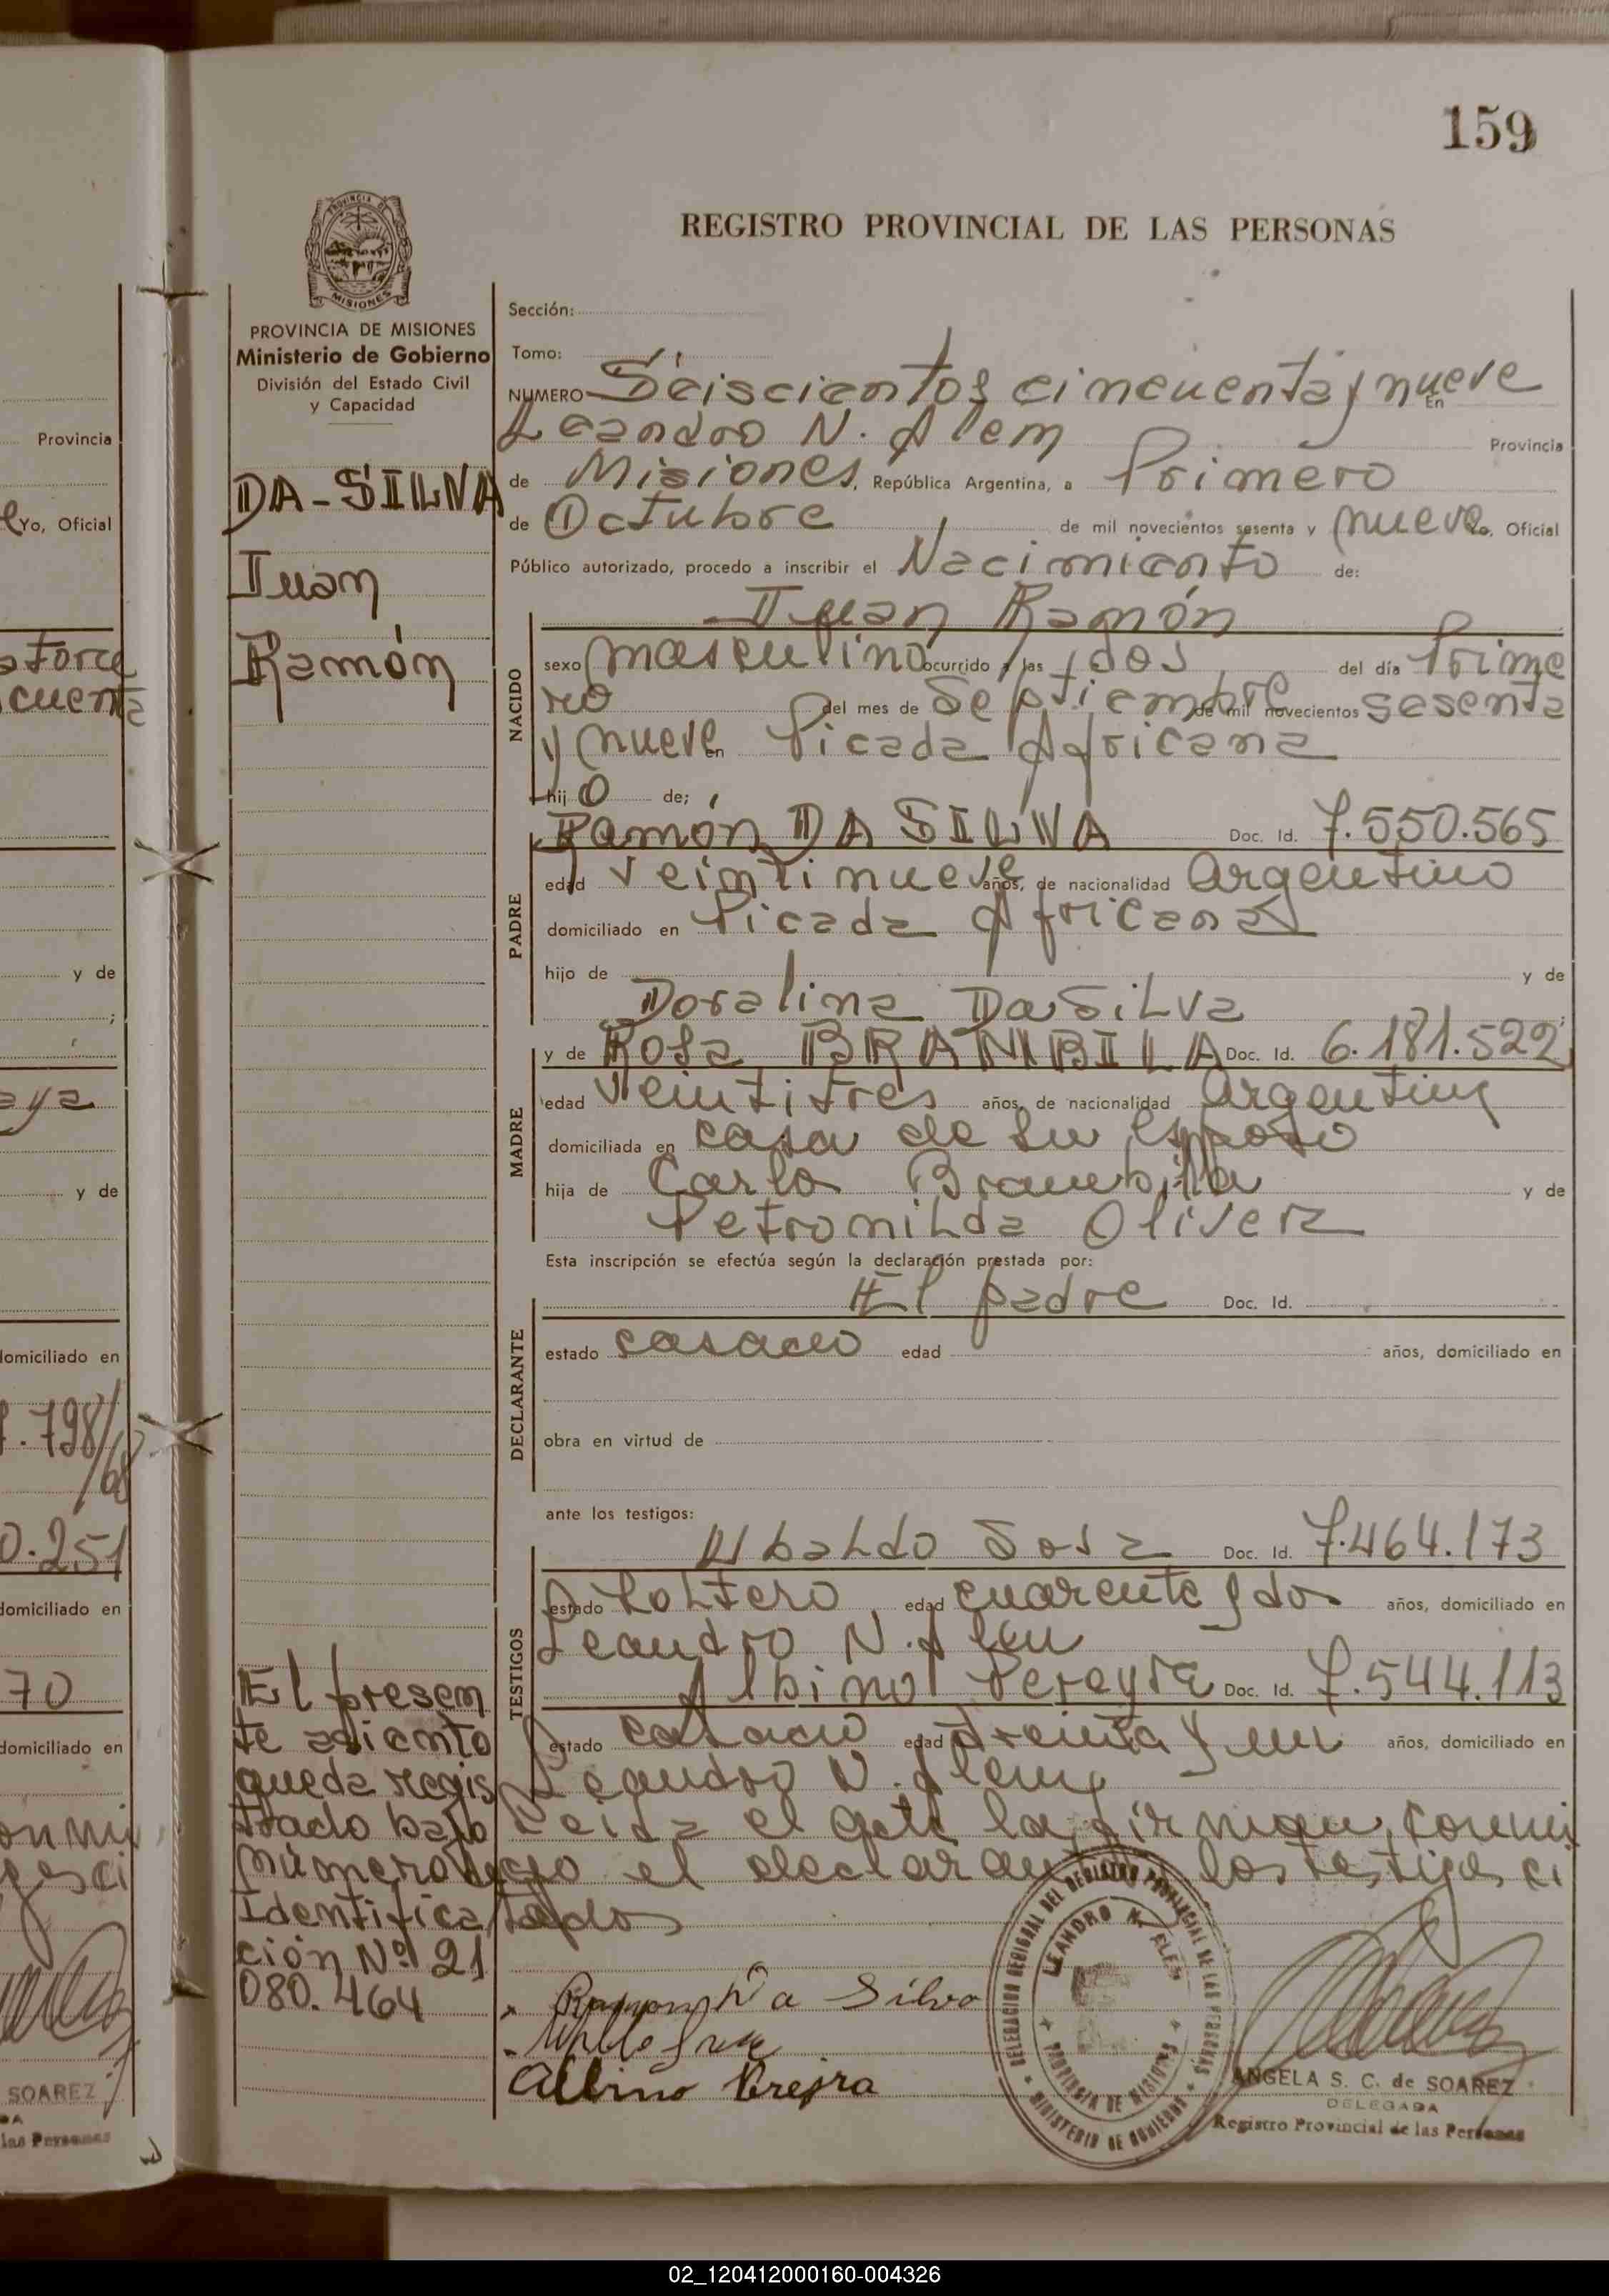 159
REGISTRO PROVINCIAL DE LAS PERSONAS
PROVINCIA DE MISIONES
Ministerio de Gobierno
División del Estado Civil
y Capacidad
DA-SILVA
Juan
Ramón
Sección:
Tomo:
NUMERO Seiscientos cincuenta y nueve En
Leandro N. Alem Provincia
de Misiones, República Argentina, a Primero
de Octubre de mil novecientos sesenta y nueve Yo, Oficial
Público autorizado, procedo a inscribir el Nacimiento de:
Juan Ramón
NACIDO
sexo masculino ocurrido a las dos del día Prime
ro del mes de Septiembre de mil novecientos sesenta
y nueve en Picada Africana
hijo de;
Ramón DA SILVA Doc. Id. 7.550.565
PADRE
edad veintinueve años, de nacionalidad Argentino
domiciliado en Picada Africana
hijo de y de
Doralina Da Silva
y de Rosa BRAMBILA Doc. Id. 6.181.522
MADRE
edad Veintitres años, de nacionalidad Argentina
domiciliada en casa de su esposo
hija de Carlo Brambila y de
Petronilda Olivera
Esta inscripción se efectúa según la declaración prestada por:
El padre Doc. Id.
DECLARANTE
estado casado edad años, domiciliado en
obra en virtud de
ante los testigos:
Ubaldo Sosa Doc. Id. 7.464.173
TESTIGOS
estado Soltero edad cuarenta y dos años, domiciliado en
Leandro N. Alem
Albino Pereyra Doc. Id. 7.544.113
estado casado edad treinta y un años, domiciliado en
Leandro N. Alem
Leida el acta la firman conmi
go el declarante y los testigos ci
tados
El presen
te asiento
queda regis
trado bajo
número de
Identifica
ción Nº 21
080.464
Ramon Da Silva
Albino Preira
DELEGACION REGIONAL DEL REGISTRO PROVINCIAL DE LAS PERSONAS
LEANDRO N. ALEM
PROVINCIA DE MISIONES
MINISTERIO DE GOBIERNO
ANGELA S. C. de SOAREZ
DELEGADA
Registro Provincial de las Personas
Provincia
Yo, Oficial
y de
aya
y de
domiciliado en
0.251
domiciliado en
70
domiciliado en
SOAREZ
las Personas
02_120412000160-004326